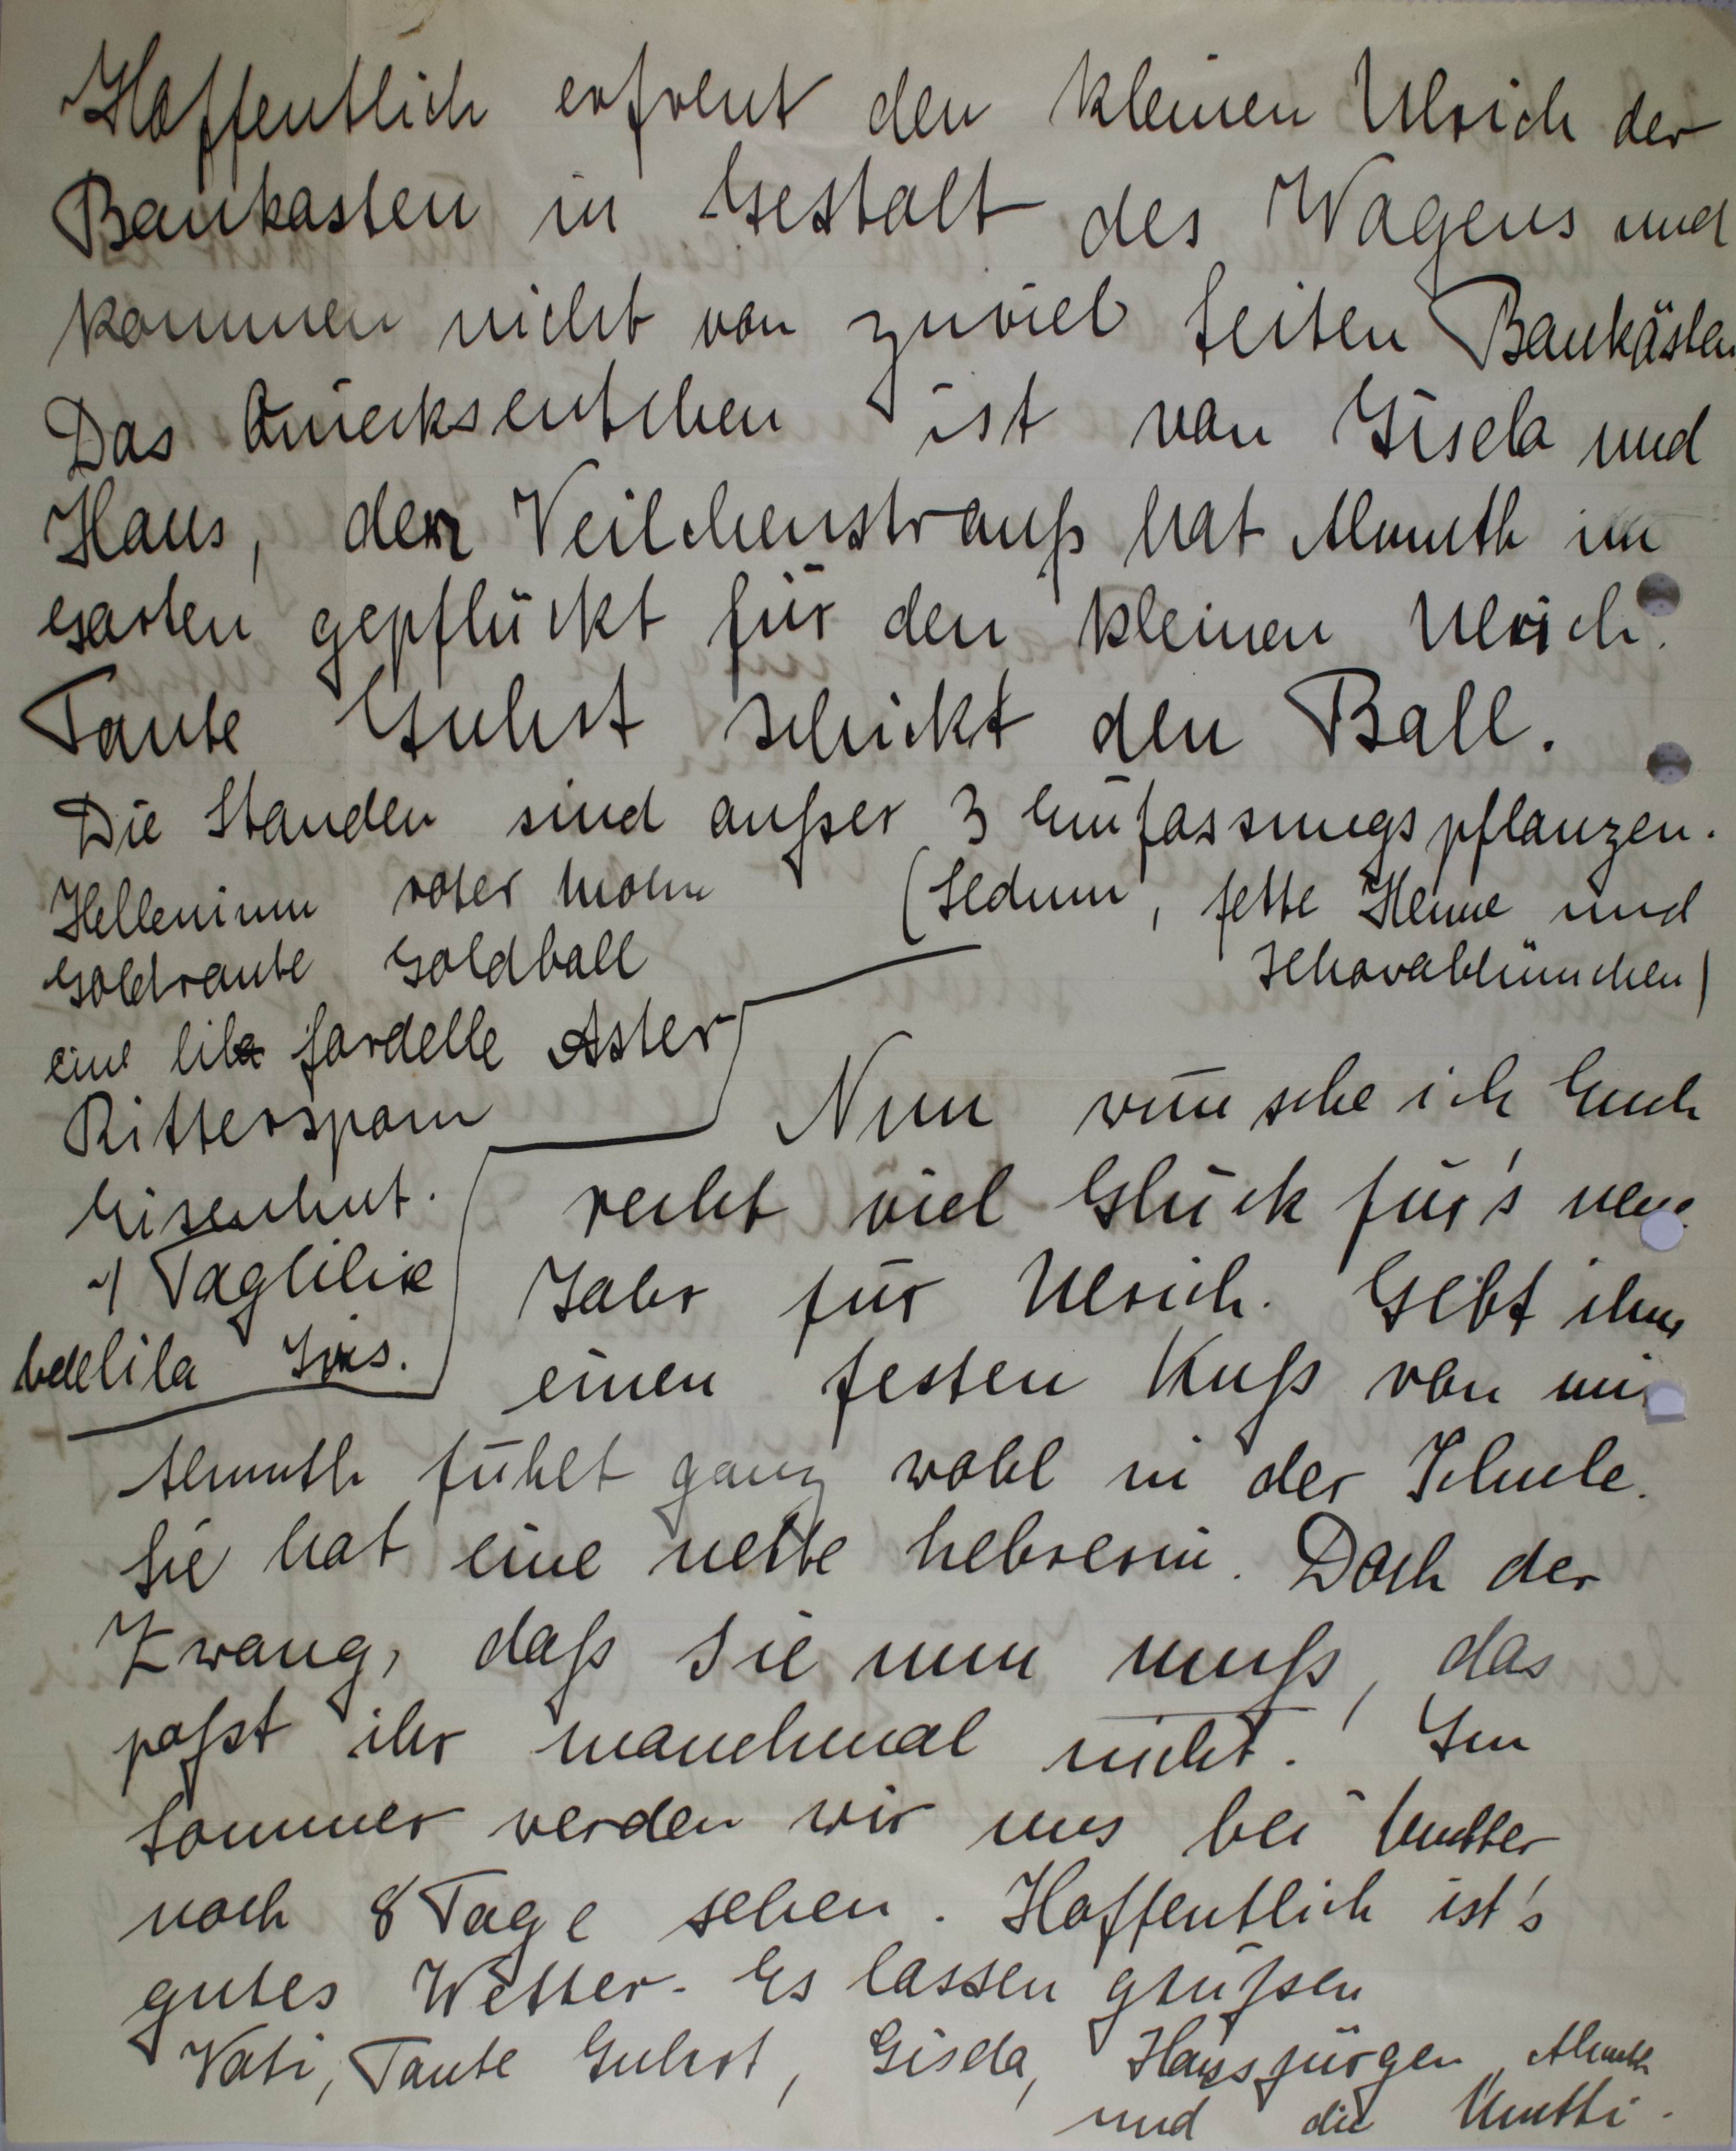 Hoffentlich erfreut den kleinen Ulrich der
Baukasten in Gestalt des Wagens und
kommen nicht von zuviel Seiten Baukästen.
Das Quieksentchen ist von Gisela und
Hans, den Veilchenstrauß hat Almuth im
Garten gepflückt für den kleinen Ulrich.
Tante Guhst schickt den Ball.
Die Stauden sind außer 3 Einfassungspflanzen.
(Sedum, fette Henne und
Jehovablümchen)
Hellenium roter Mohn
Goldraute Goldball
eine lila Aster
Rittersporn
Eisenhut.
1 Taglilie
hellila Iris.
Nun wünsche ich Euch
recht viel Glück für's neue
Jahr für Ulrich. Gebt ihm
einen festen Kuß von mir
Almuth fühlt ganz wohl in der Schule.
Sie hat eine nette Lehrerin. Doch der
Zwang, daß sie nun muß, das
paßt ihr manchmal nicht! Im
Sommer werden wir uns bei Mutter
noch 8 Tage sehen. Hoffentlich ist's
gutes Wetter. Es lassen grüßen
Vati, Tante Guhst, Gisela, Hansjürgen, Almuth
und die Mutti.